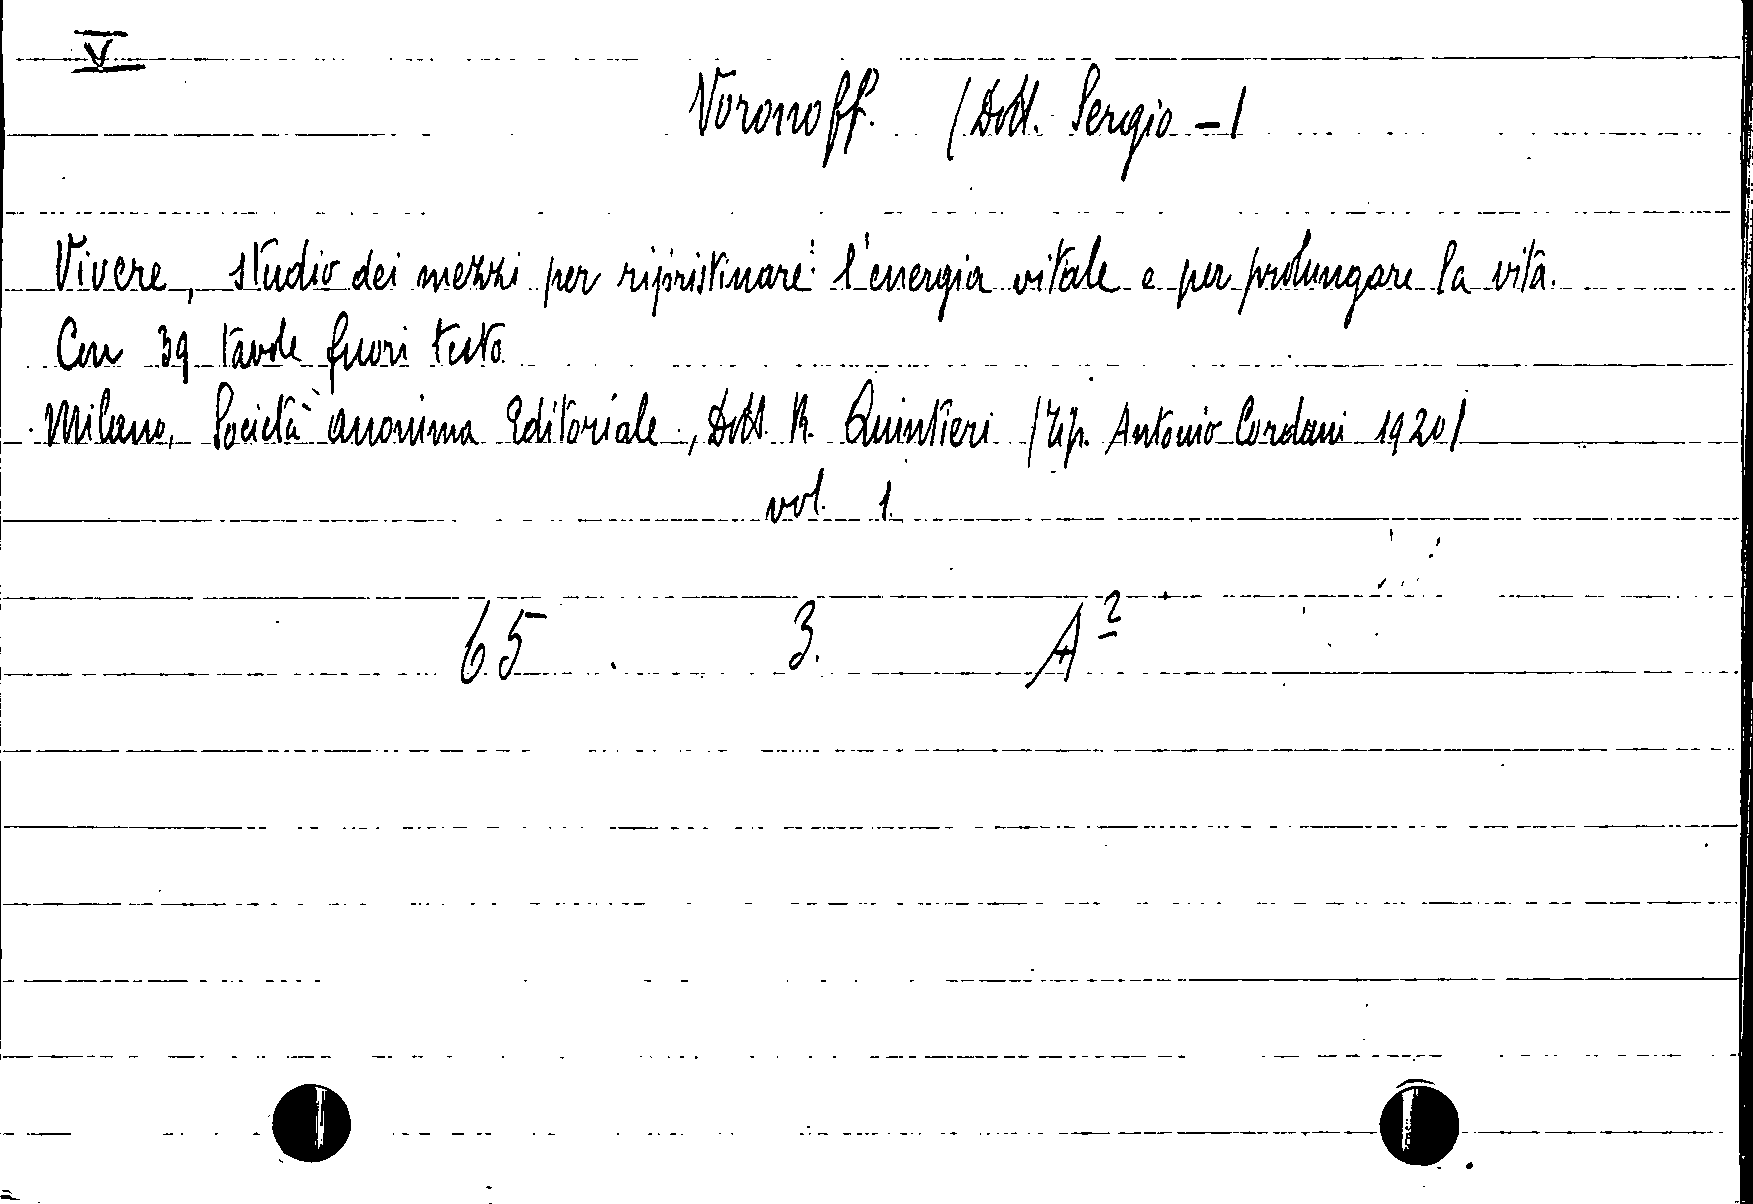 V
Voronoff. (Dott. Sergio -)
Vivere, studio dei mezzi per ripristinare l'energia vitale e per prolungare la vita.
Con 39 tavole fuori testo
Milano, Società anonima Editoriale, Dott. R. Quintieri (Tip. Antonio Cordani 1920)
vol. 1.
65. 3. A²